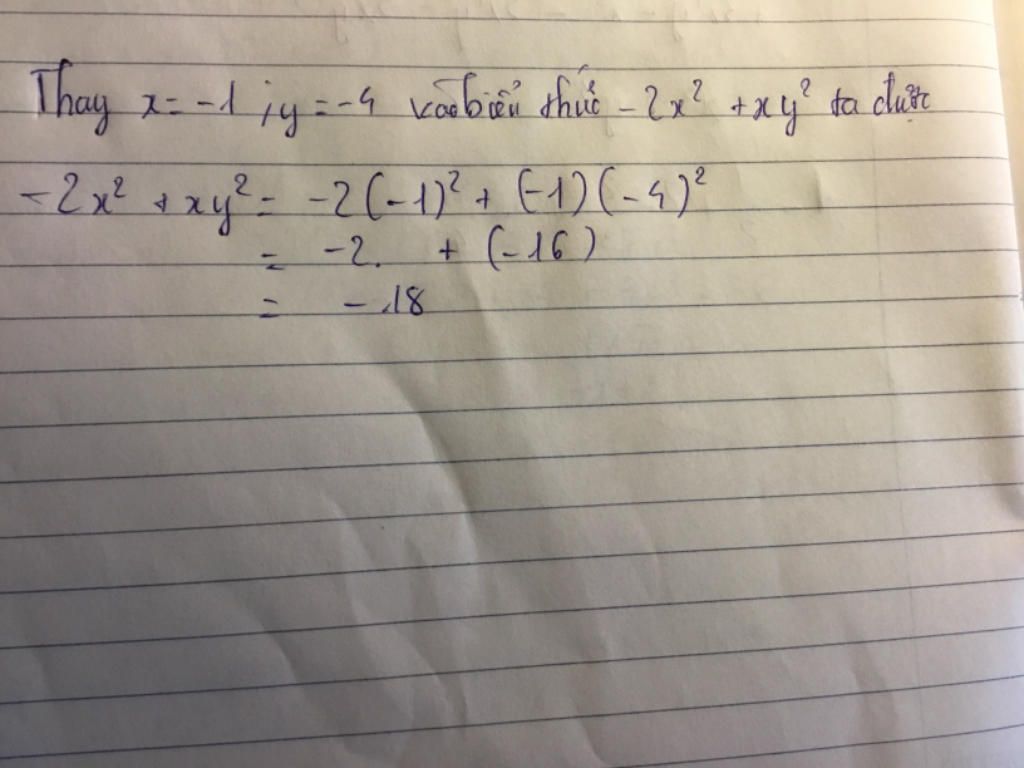 Thay x = -1 ; y = -4 vào biểu thức -2x² + xy² ta được
-2x² + xy² = -2(-1)² + (-1)(-4)²
= -2. + (-16)
= -18